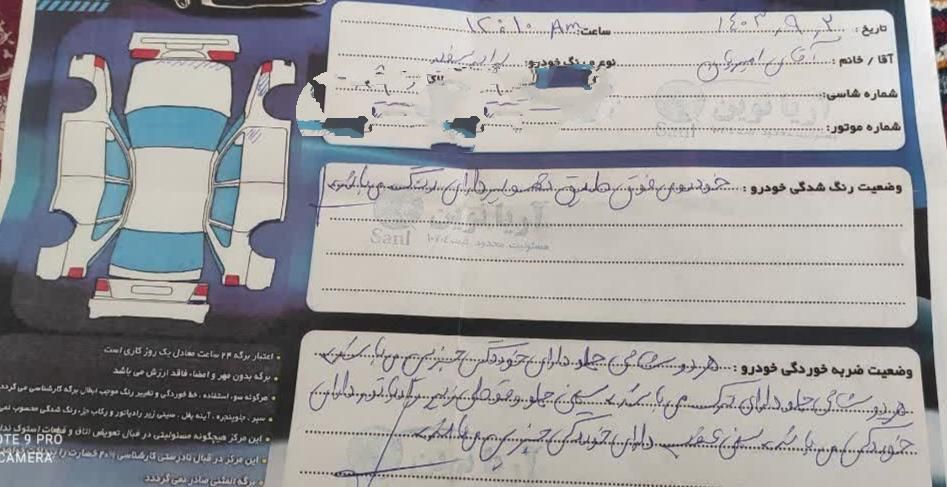 تاریخ: ۱۴۰۳،۹،۲ ساعت: ۱۲:۱۰ Am
آقا / خانم: آقای نوع و رنگ خودرو:
شماره شاسی:
آریا نوین
Sanl
شماره موتور:
وضعیت رنگ شدگی خودرو: خودروی فوق مطابق تصویر دارای رنگ می باشد
آریا نوین
Sanl
مسئولیت محدود
وضعیت ضربه خوردگی خودرو: هر دو شاسی جلو دارای خوردگی جزیی می باشد
هر دو شاسی جلو دارای ترک می باشد، سینی جلو و قوطی زیر رادیاتور دارای
خوردگی می باشد، سینی عقب دارای خوردگی جزیی می باشد
• اعتبار برگه ۲۴ ساعت معادل یک روز کاری است
• برگه بدون مهر و امضاء فاقد ارزش می باشد
• هرگونه سوء استفاده . خط خوردگی و تغییر رنگ موجب ابطال برگه کارشناسی می گردد
• سپر . جلوپنجره . آینه بغل . سینی زیر رادیاتور و رکاب جزء رنگ شدگی محسوب نمی
• این مرکز هیچگونه مسئولیتی در قبال تعویض اتاق و قطعات استوک ندارد
• این مرکز در قبال نادرستی کارشناسی ۲۰% خسارت را
• برگه المثنی صادر نمی گردد
OTE 9 PRO
CAMERA